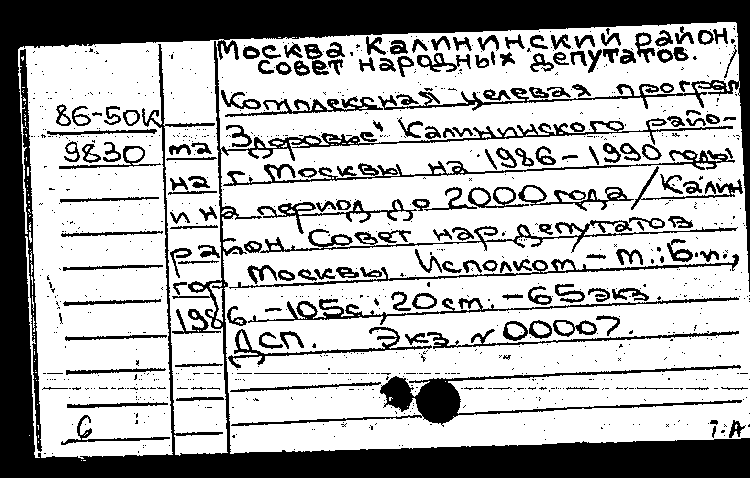 Москва. Калининский район.
Совет народных депутатов.
86-50к
Комплексная целевая програм
9830
ма „Здоровье" Калининского райо-
на г. Москвы на 1986-1990 годы
и на период до 2000 года / Калин
район. Совет нар. депутатов
гор. Москвы. Исполком. - М.: Б.и.,
1986. - 105с.; 20см. - 65 экз.
ДСП. Экз. N 00007.
6